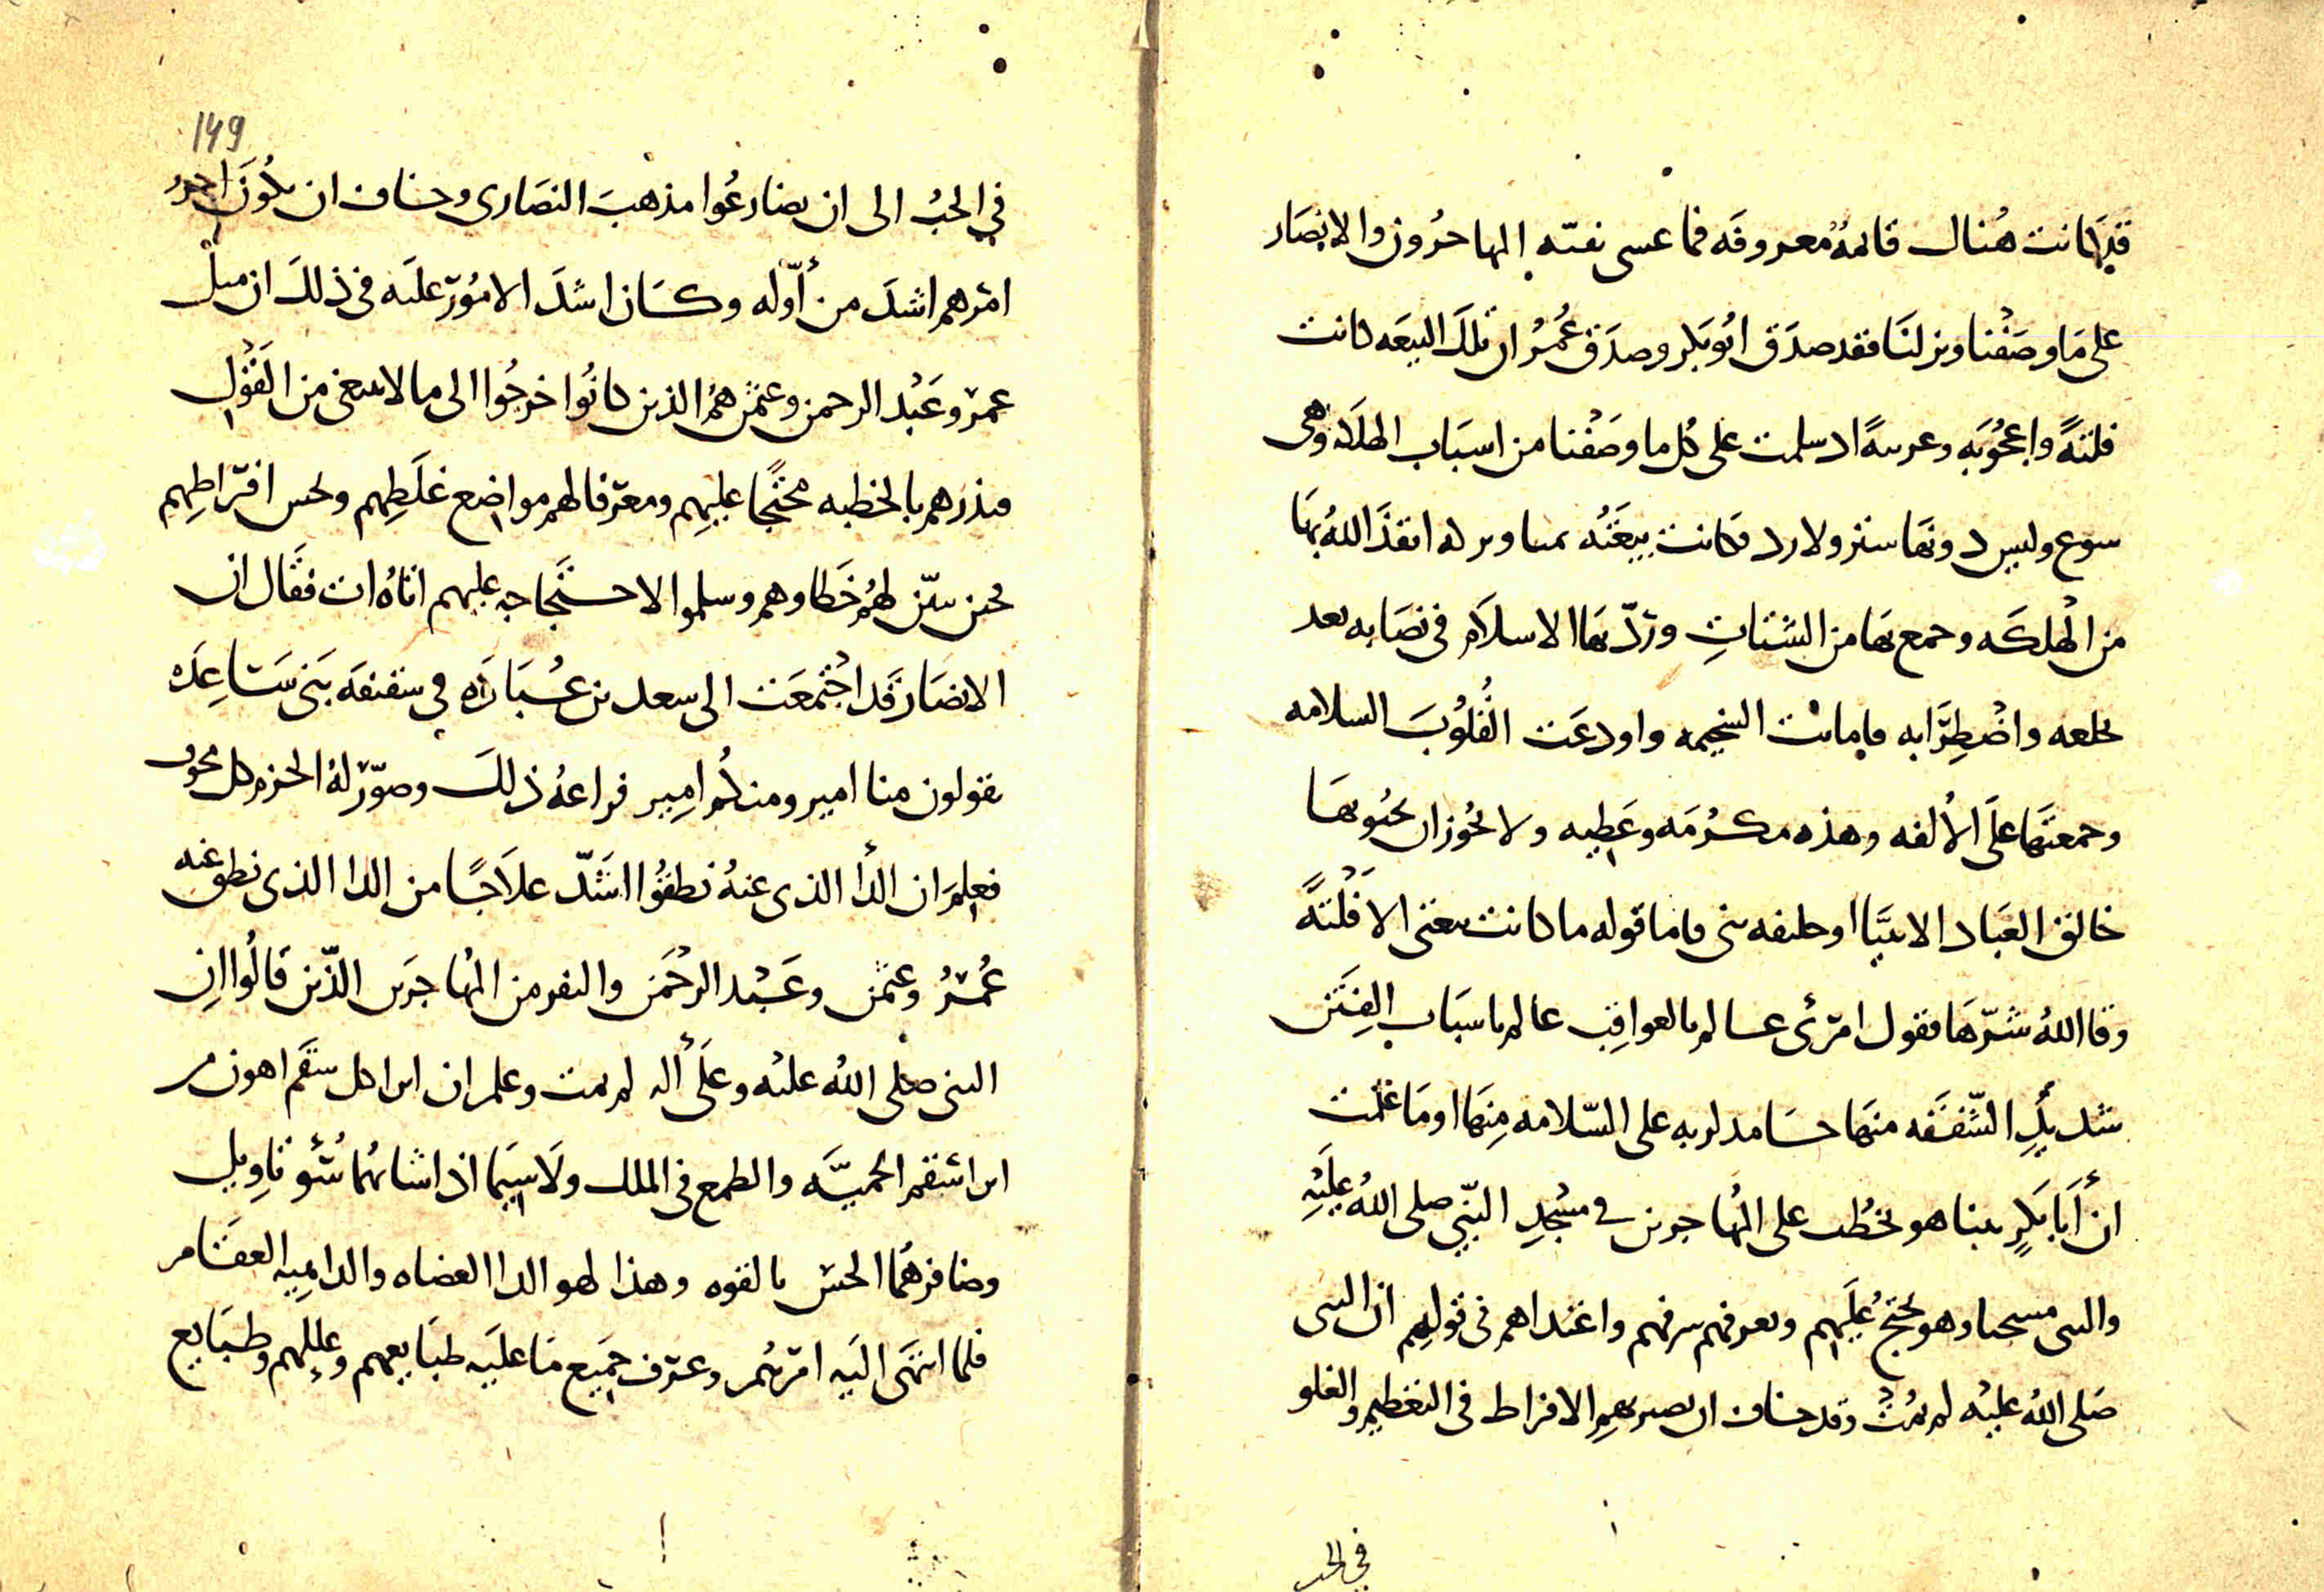 قد كانت هنال قائمة معروفه فما عسى نفته المهاجرون والانصار
على ما وصفنا ونزلنا فقد صدق ابو بكر وصدق عمر ان تلك البيعه كانت
فلتةً واعجوبه وغريبةً اذ سلمت على كل ما وصفنا من اسباب الهلكه وهى
وليس دونها ستر ولا رد فكانت بيعته يمنا وبركه انقذ الله بها
من الهلكه وجمع بها من الشتات وردّ بها الاسلام فى نصابه بعد
تخلعه واضطرابه فاماتت السخيمه واودعت القلوب السلامه
وجمعتها على الالفه وهذه مكرمه وعطيه ولا يجوز ان يحبو بها
خالق العباد الا نبيّا او خليفه نبى فاما قوله ما كانت بيعتى الا فلتةً
وقا الله شرّها فقول امرئ عالم بالعواقب عالم باسباب الفتن
شديدِ الشفقه منها حامد لربه على السّلامه منها او ما علمت
ان أبا بكرٍ بينا هو يخطب على المهاجرين في مسجدِ النّبي صلى الله عليه
والنبى مسجا وهو يحتج عليهم ويعرفهم سرفهم واعتداهم فى قولهم ان النبى
صلى الله عليه لم يمت وقد خاف ان يصير بهم الافراط فى التعظيم والغلو
في الحب
149
في الحب الى ان يضارعوا مذهب النصارى وخاف ان يكون اخر
امرهم اشد من أوّله وكان اشد الامور عليه فى ذلك ان مثل
عمر وعبد الرحمن وعثمن هم الذين كانوا خرجوا الى ما لا ينبغى من القول
فبدرهم بالخطبه محتجًا عليهم ومعرفا لهم مواضع غلطهم ونحس افراطهم
فحين تبيّن لهم خطاوهم وسلموا لاحتجاجه عليهم اتاه ات فقال ان
الانصار قد اجتمعت الى سعد بن عباده في سقيفه بنى ساعده
يقولون منا امير ومنكم امير فراعه ذلك وصوّر له الحزم كل مخوف
فعلم ان الدأ الذى عنه نطقوا اشدّ علاجًا من الدا الذى نطق عنه
عمر وعثمن وعبد الرحمن والنفر من المهاجرين الذّين قالوا ان
النبى صلى الله عليه وعلى أله لم يمت وعلم ان ابرا كل سقم اهون من
ابرا سقم الحميّه والطمع فى الملك ولا سيما اذا شابهما سُوُ تاويل
وضافرهما الحس بالقوه وهذا لهو الدا العضاه والداهيه العقام
فلما انتهى اليه امرهم وعرف جميع ما عليه طبايعهم وعللهم وطبايع